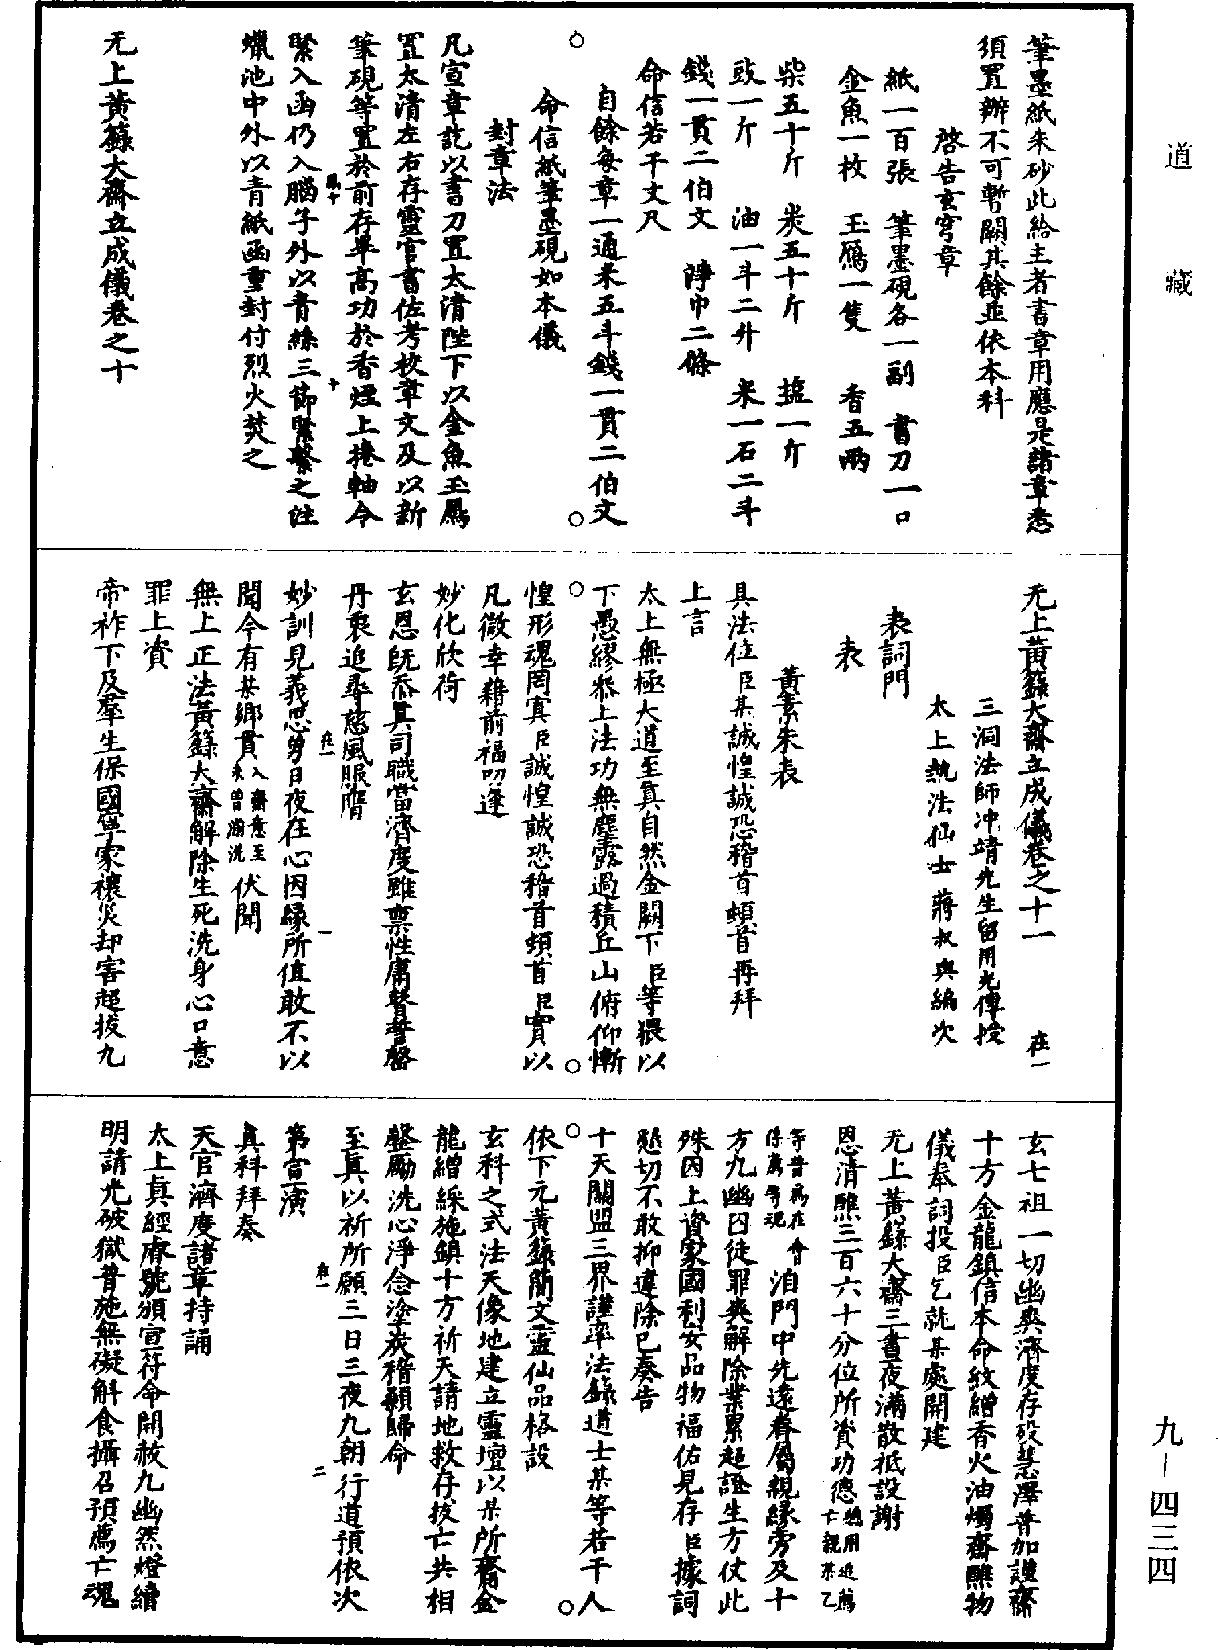 道藏
筆墨紙朱砂此給主者書章用應是諸章悉
須置辦不可暫闕其餘並依本科
啓告玄穹章
紙一百張　筆墨硯各一副　書刀一口
金魚一枚　玉鴈一隻　香五兩
柴五十斤　炭五十斤　鹽一斤
豉一斤　油一斗二升　米一石二斗
錢一貫二伯文　淨巾二條
命信若干丈尺
自餘每章一通米五斗錢一貫二伯文
○　○
命信紙筆墨硯如本儀
封章法
凡宣章訖以書刀置太清陛下以金魚玉鴈
置太清左右存靈官書佐考校章文及以新
筆硯等置於前存畢高功於香煙上捲軸令
風十　十
緊入函仍入腦子外以青絲三節緊繫之注
蠟池中外以青紙函重封付烈火焚之
无上黃籙大齋立成儀卷之十
无上黃籙大齋立成儀卷之十一　在一
三洞法師冲靖先生留用光傳授
太上執法仙士蔣叔輿編次
表詞門
表
黃素朱表
具法位臣某誠惶誠恐稽首頓首再拜
上言
太上無極大道至真自然金闕下臣等猥以
下愚繆忝上法功無塵露過積丘山俯仰慚
○　○
惶形魂罔寘臣誠惶誠恐稽首頓首臣實以
凡微幸藉前福叨逢
妙化欣荷
玄恩既忝真司職當濟度雖稟性庸瞽誓罄
丹衷追尋慈風服膺
在一　一
妙訓見義思勇日夜在心因緣所值敢不以
聞今有某鄉貫入齋意至未曾湔洗伏聞
無上正法黃籙大齋解除生死洗身心口意
罪上資
帝祚下及羣生保國寧家禳災却害超拔九
玄七祖一切幽輿濟度存歿慧澤普加謹齎
十方金龍鎮信本命紋繒香火油燭齋醮物
儀奉詞投臣乞就某處開建
无上黃籙大齋三晝夜滿散祗設謝
恩清醮三百六十分位所資功德總用追薦亡親某乙
等普爲在會係薦等魂洎門中先遠眷屬親緣旁及十
方九幽囚徒罪爽解除業累超證生方仗此
殊因上資家國利安品物福佑見存臣據詞
懇切不敢抑違除已奏告
十天關盟三界謹率法籙道士某等若干人
○　○
依下元黃籙簡文靈仙品格設
玄科之式法天像地建立靈壇以某所齎金
龍繒綵施鎮十方祈天請地救存拔亡共相
整勵洗心淨念塗炭稽顙歸命
至真以祈所願三日三夜九朝行道預依次
在一　二
第宣演
真科拜奏
天官濟度諸章持誦
太上真經齋號頒宣符命開赦九幽然燈續
明請光破獄普施無礙斛食攝召預薦亡魂
九－四三四